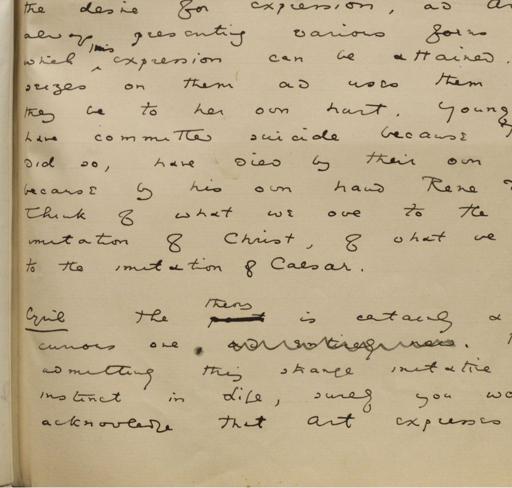 the desire for expression, and Art
always presenting various forms
which this expression can be attained.
seizes on them and uses them
they be to her own hurt. Young
have committed suicide because
did so, have died by their own
because by his own hand Rene
Think of what we owe to the
imitation of Christ, of what we
to the imitation of Caesar.
Cyril The theory is certainly a
curious one
admitting this strange imitative
instinct in Life, surely you wo
acknowledge that Art expresses